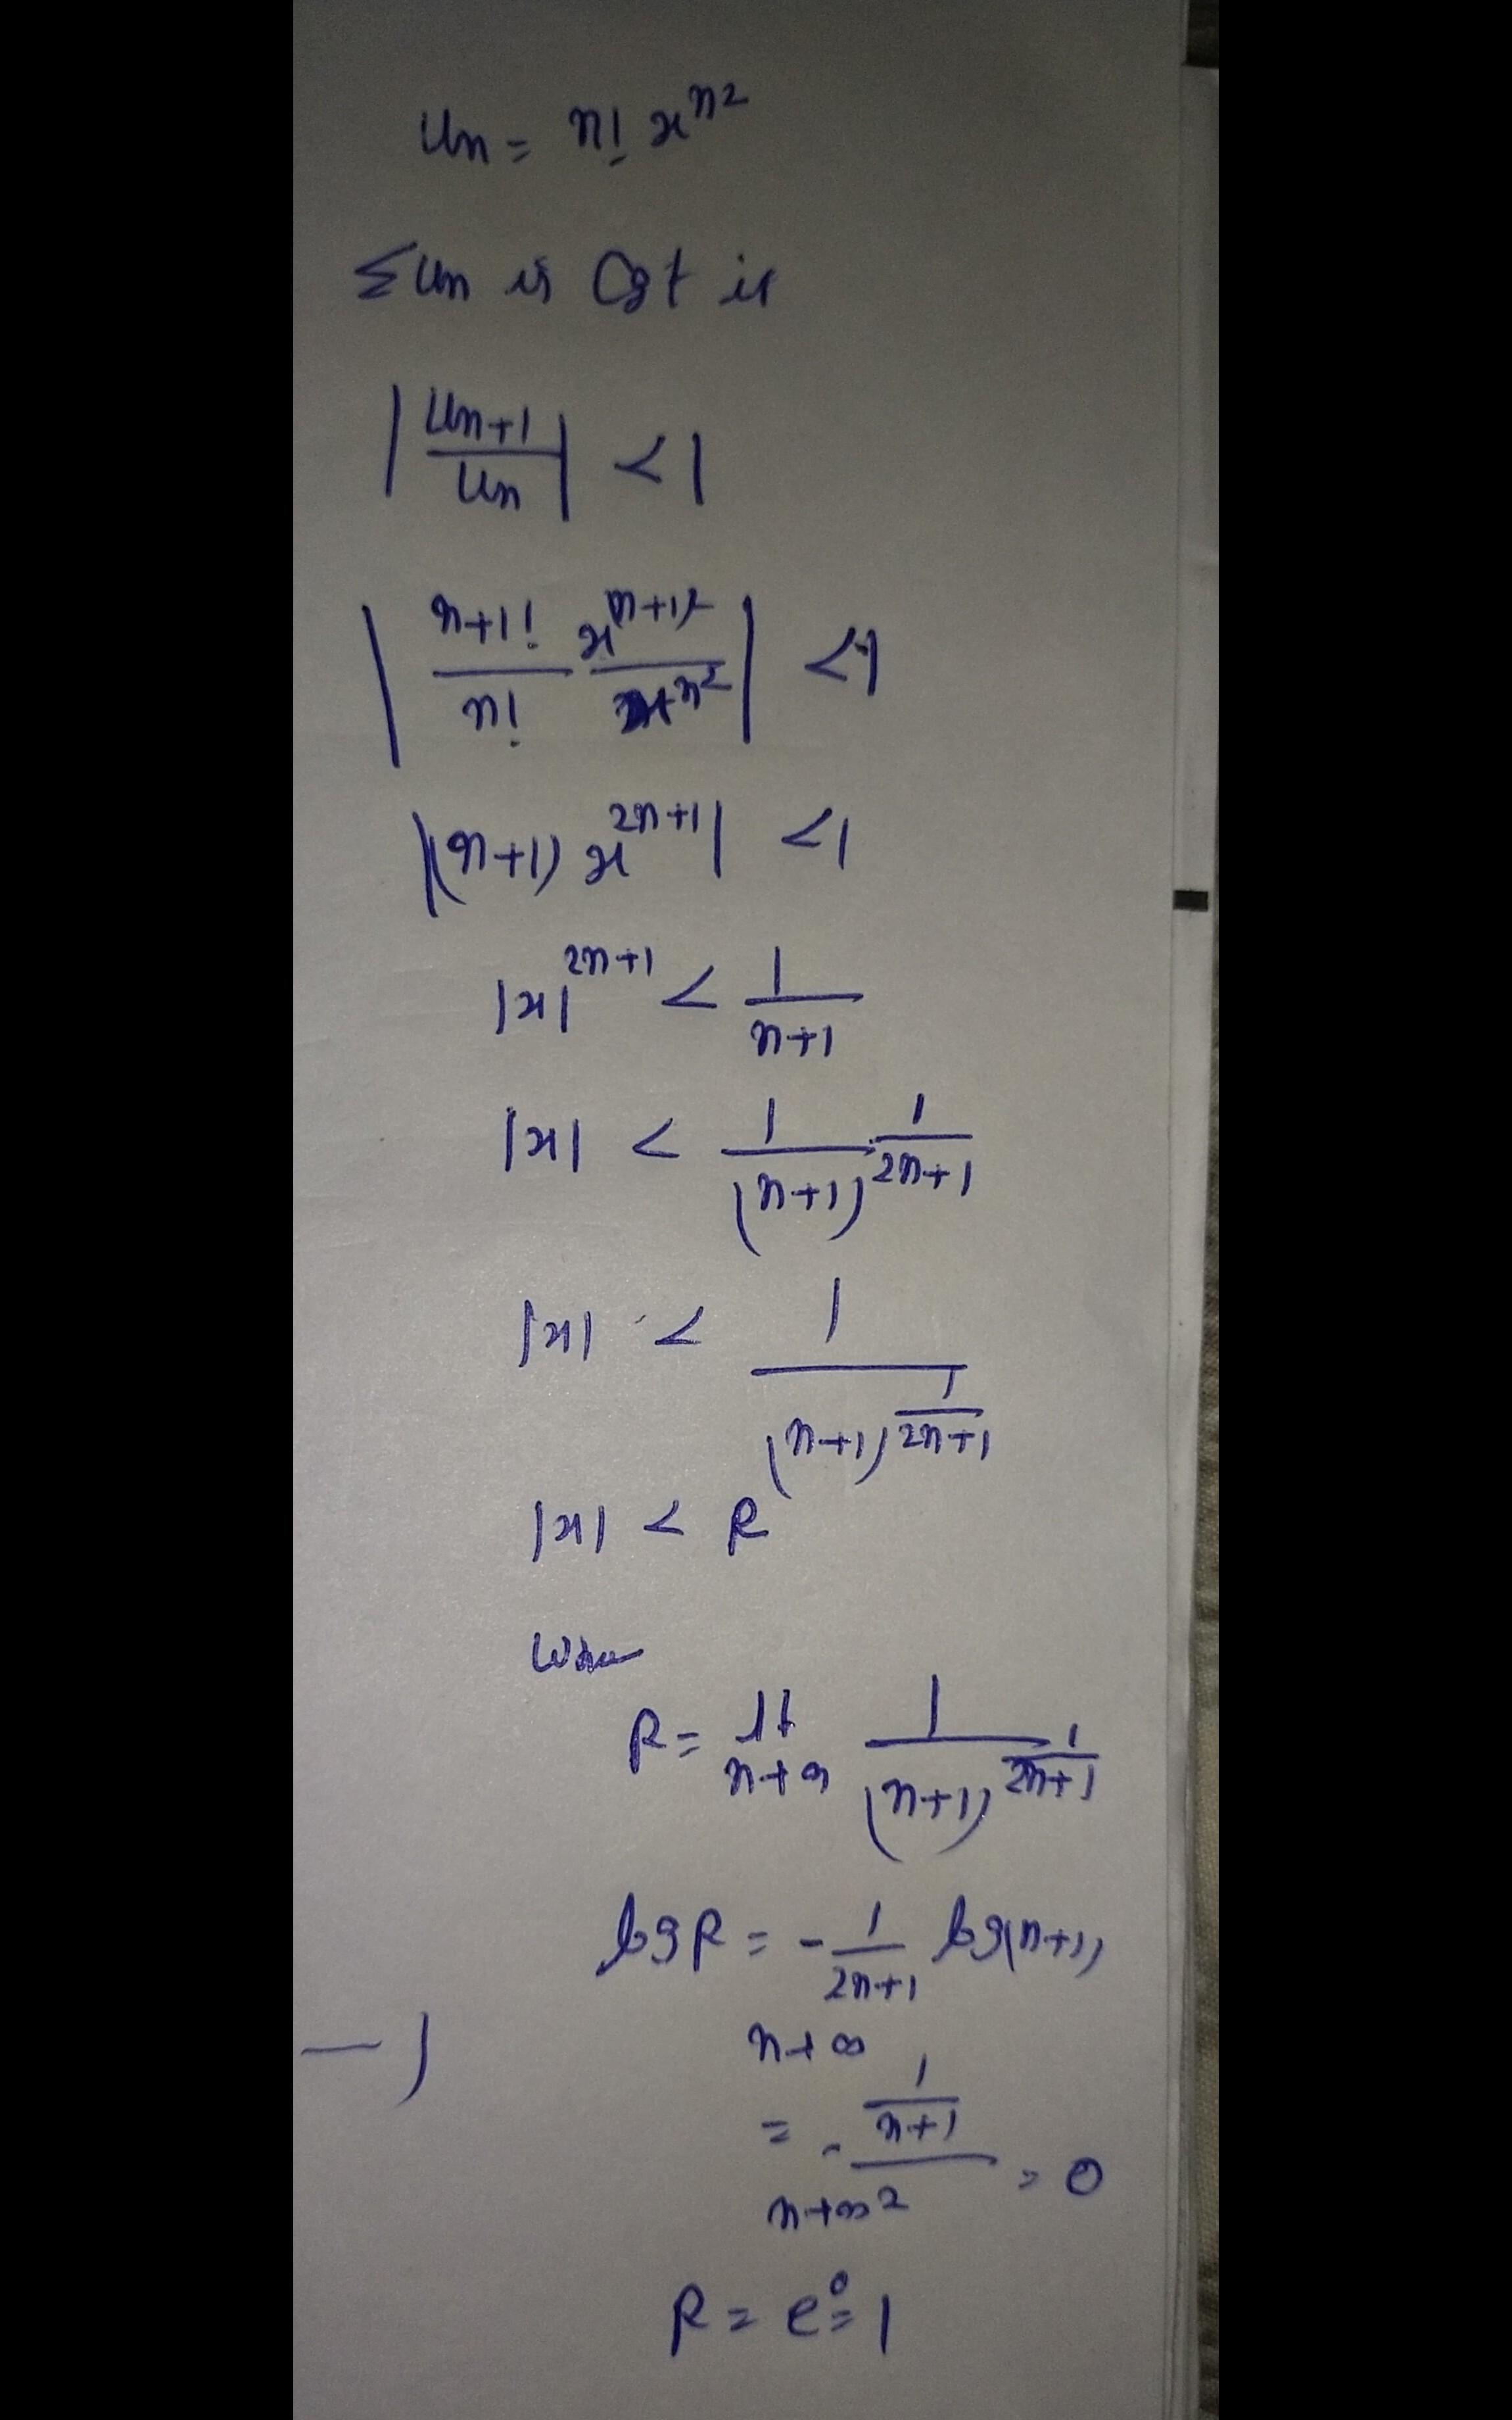 Un = n! x^n2
Σun is Cgt if
|Un+1/Un| < 1
|n+1!/n! x^(n+1)2/x^n2| < 1
|(n+1) x^2n+1| < 1
|x|^2n+1 < 1/n+1
|x| < 1/(n+1)^1/2n+1
|x| < 1/(n+1)^1/2n+1
|x| < R
Where
R = lt n→∞ 1/(n+1)^1/2n+1
log R = - 1/2n+1 log(n+1)
n→∞
= - 1/n+1 / 2 = 0
n→∞
R = e^0 = 1